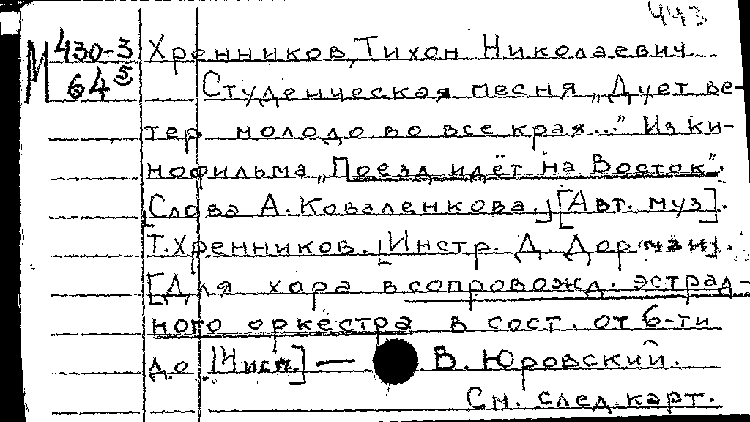 443
М 430-3 Хренников, Тихон Николаевич
64 5 Студенческая песня „Дует ве-
тер молодо во все края..." Из ки-
нофильма „Поезд идёт на Восток".
[Слова А. Коваленкова.] [Авт. муз].
Т. Хренников. [Инстр. Д.
[Для хора в сопровожд. эстрад-
ного оркестра в сост. от 6-ти
до [Исп.] — В. Юровский.
См. след. карт.